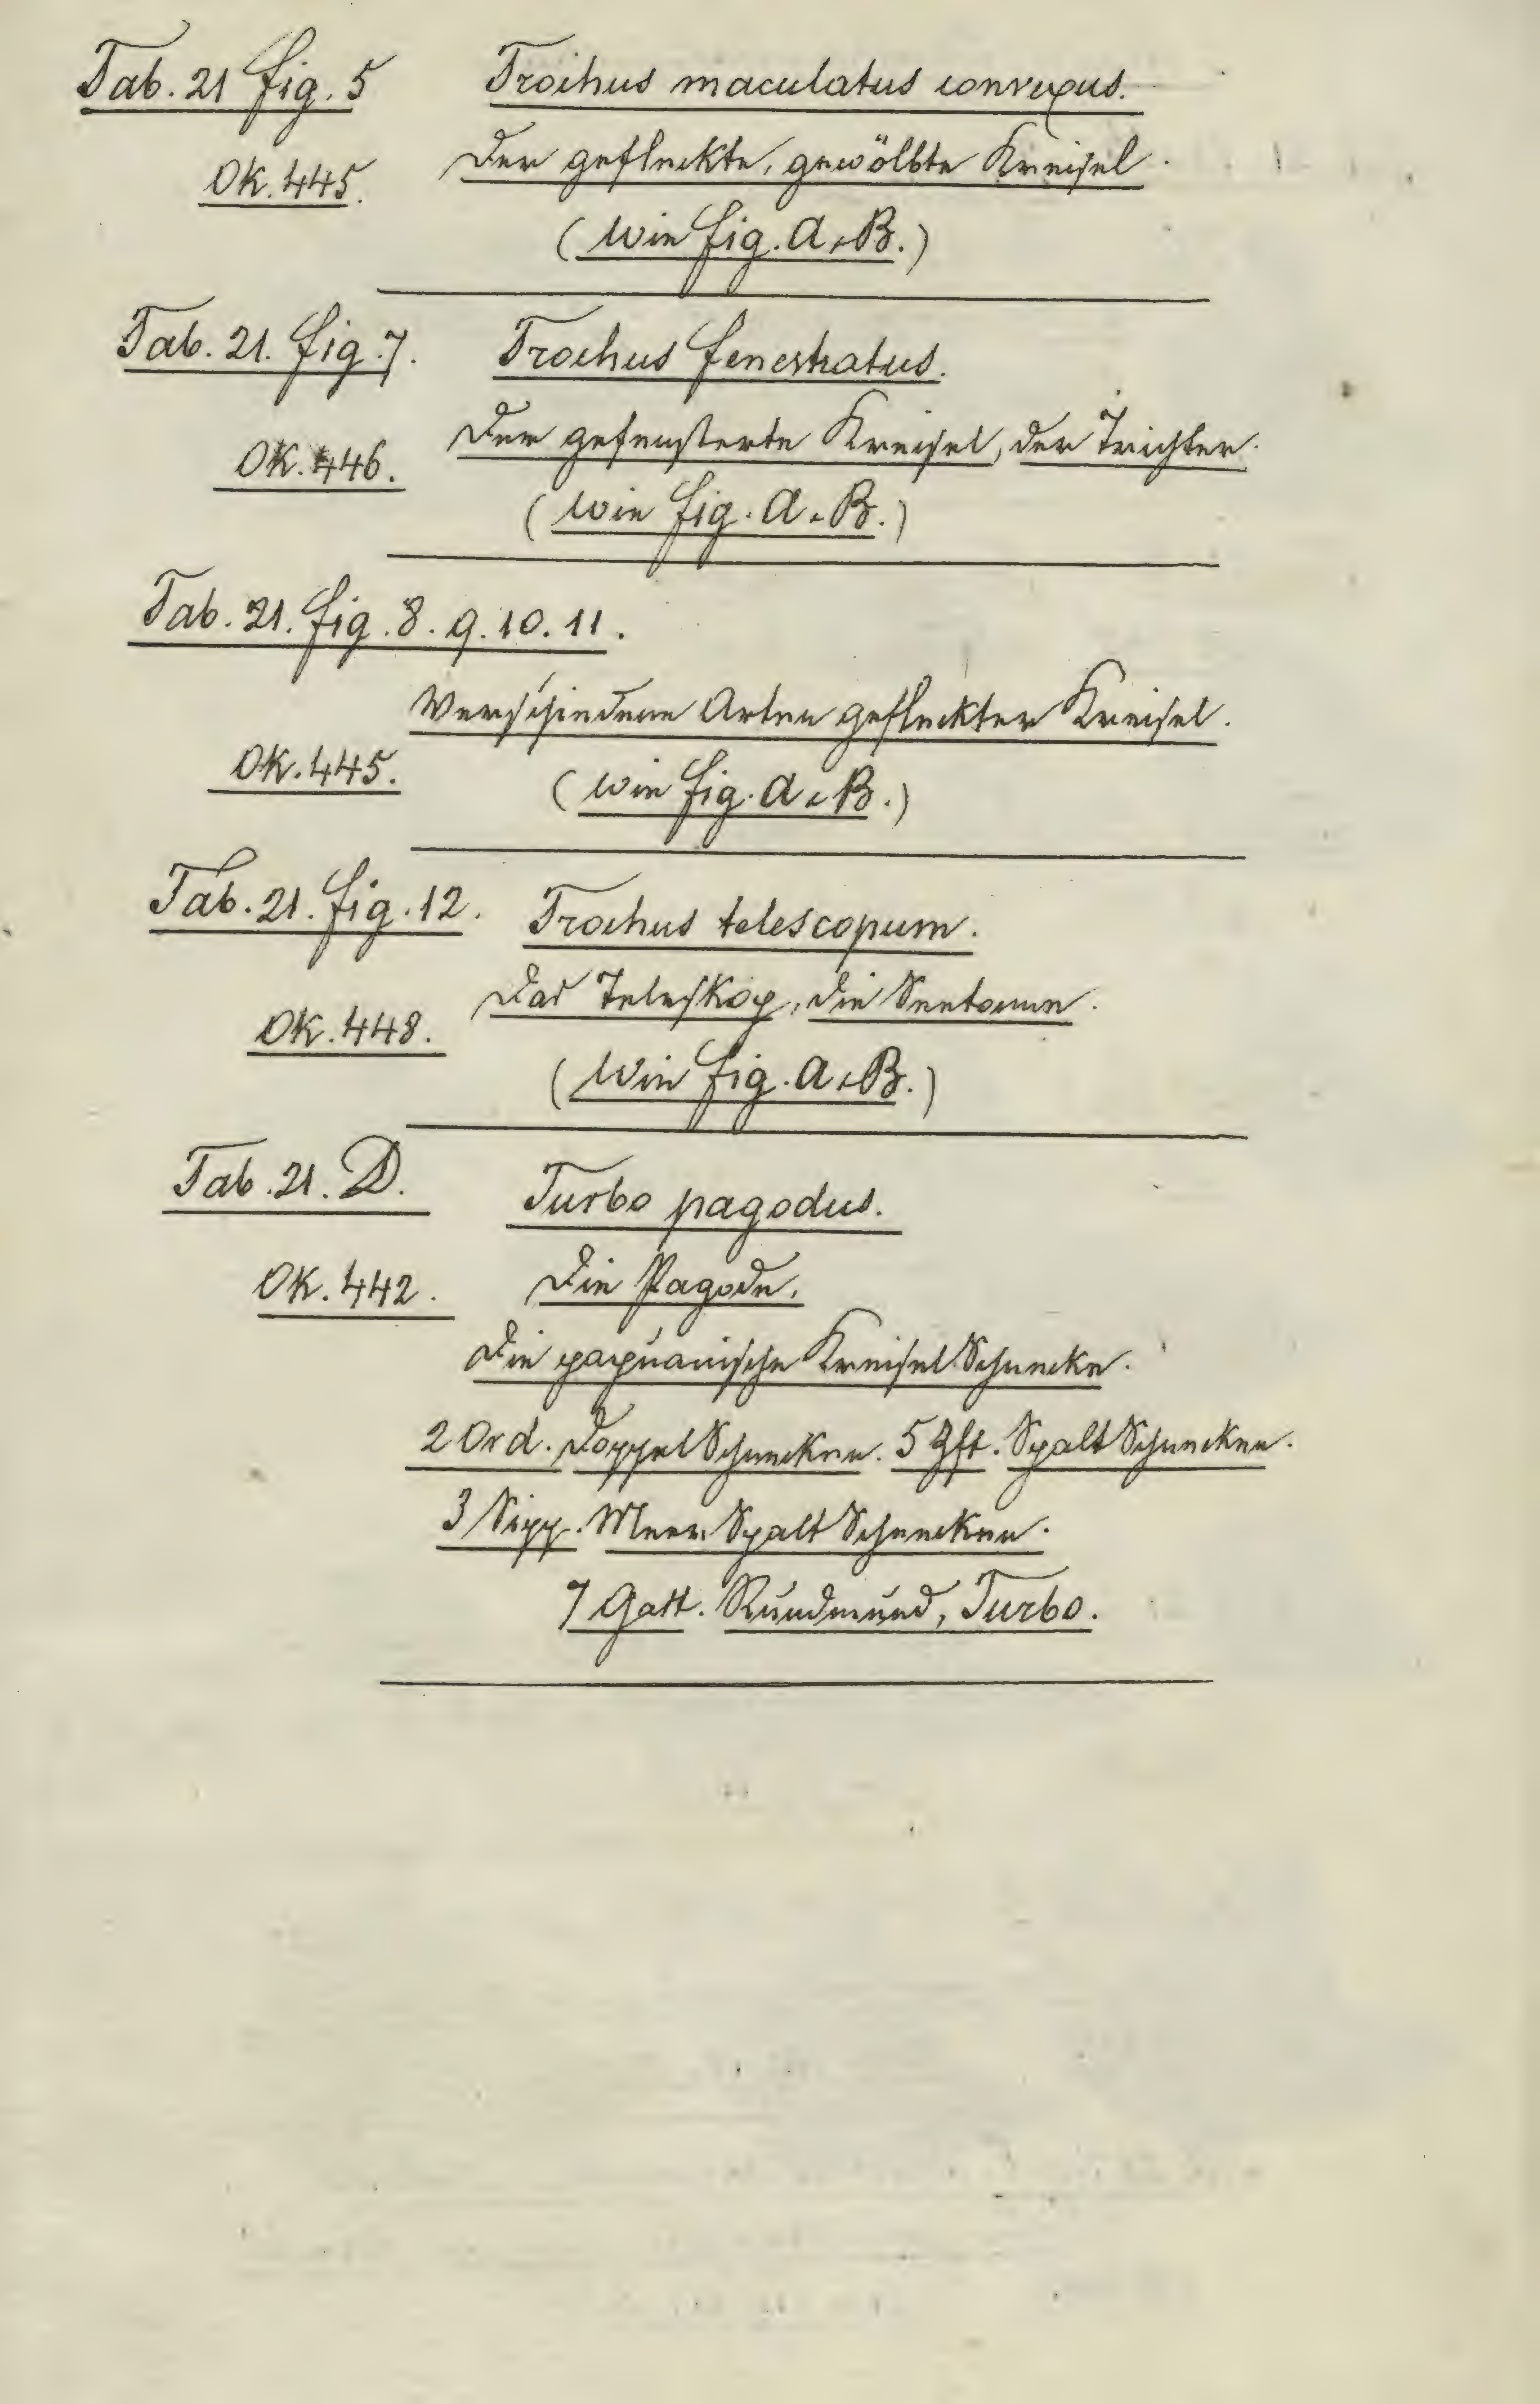 Tab. 21 fig. 5 Trochus maculatus convexus.
Ok. 445. Der gefleckte, gewölbte Kreisel.
(wie fig. A. B.)
Tab. 21. fig. 7. Trochus fenestratus.
Ok. 446. Der gefensterte Kreisel, der Trichter.
(wie fig. A. B.)
Tab. 21. fig. 8. 9. 10. 11.
Verschiedene Arten gefleckter Kreisel.
Ok. 445. (wie fig. A. B.)
Tab. 21. fig. 12. Trochus telescopum.
Ok. 448. Das Teleskop, die Seetonne.
(wie fig. A. B.)
Tab. 21. D. Turbo pagodus.
Ok. 442. Die Pagode.
Die papuanische Kreisel Schnecke.
2 Ord. Doppel Schnecken. 5 Zft. Spalt Schnecken.
3 Sipp. Meer Spalt Schnecken.
7 Gatt. Rundmund, Turbo.